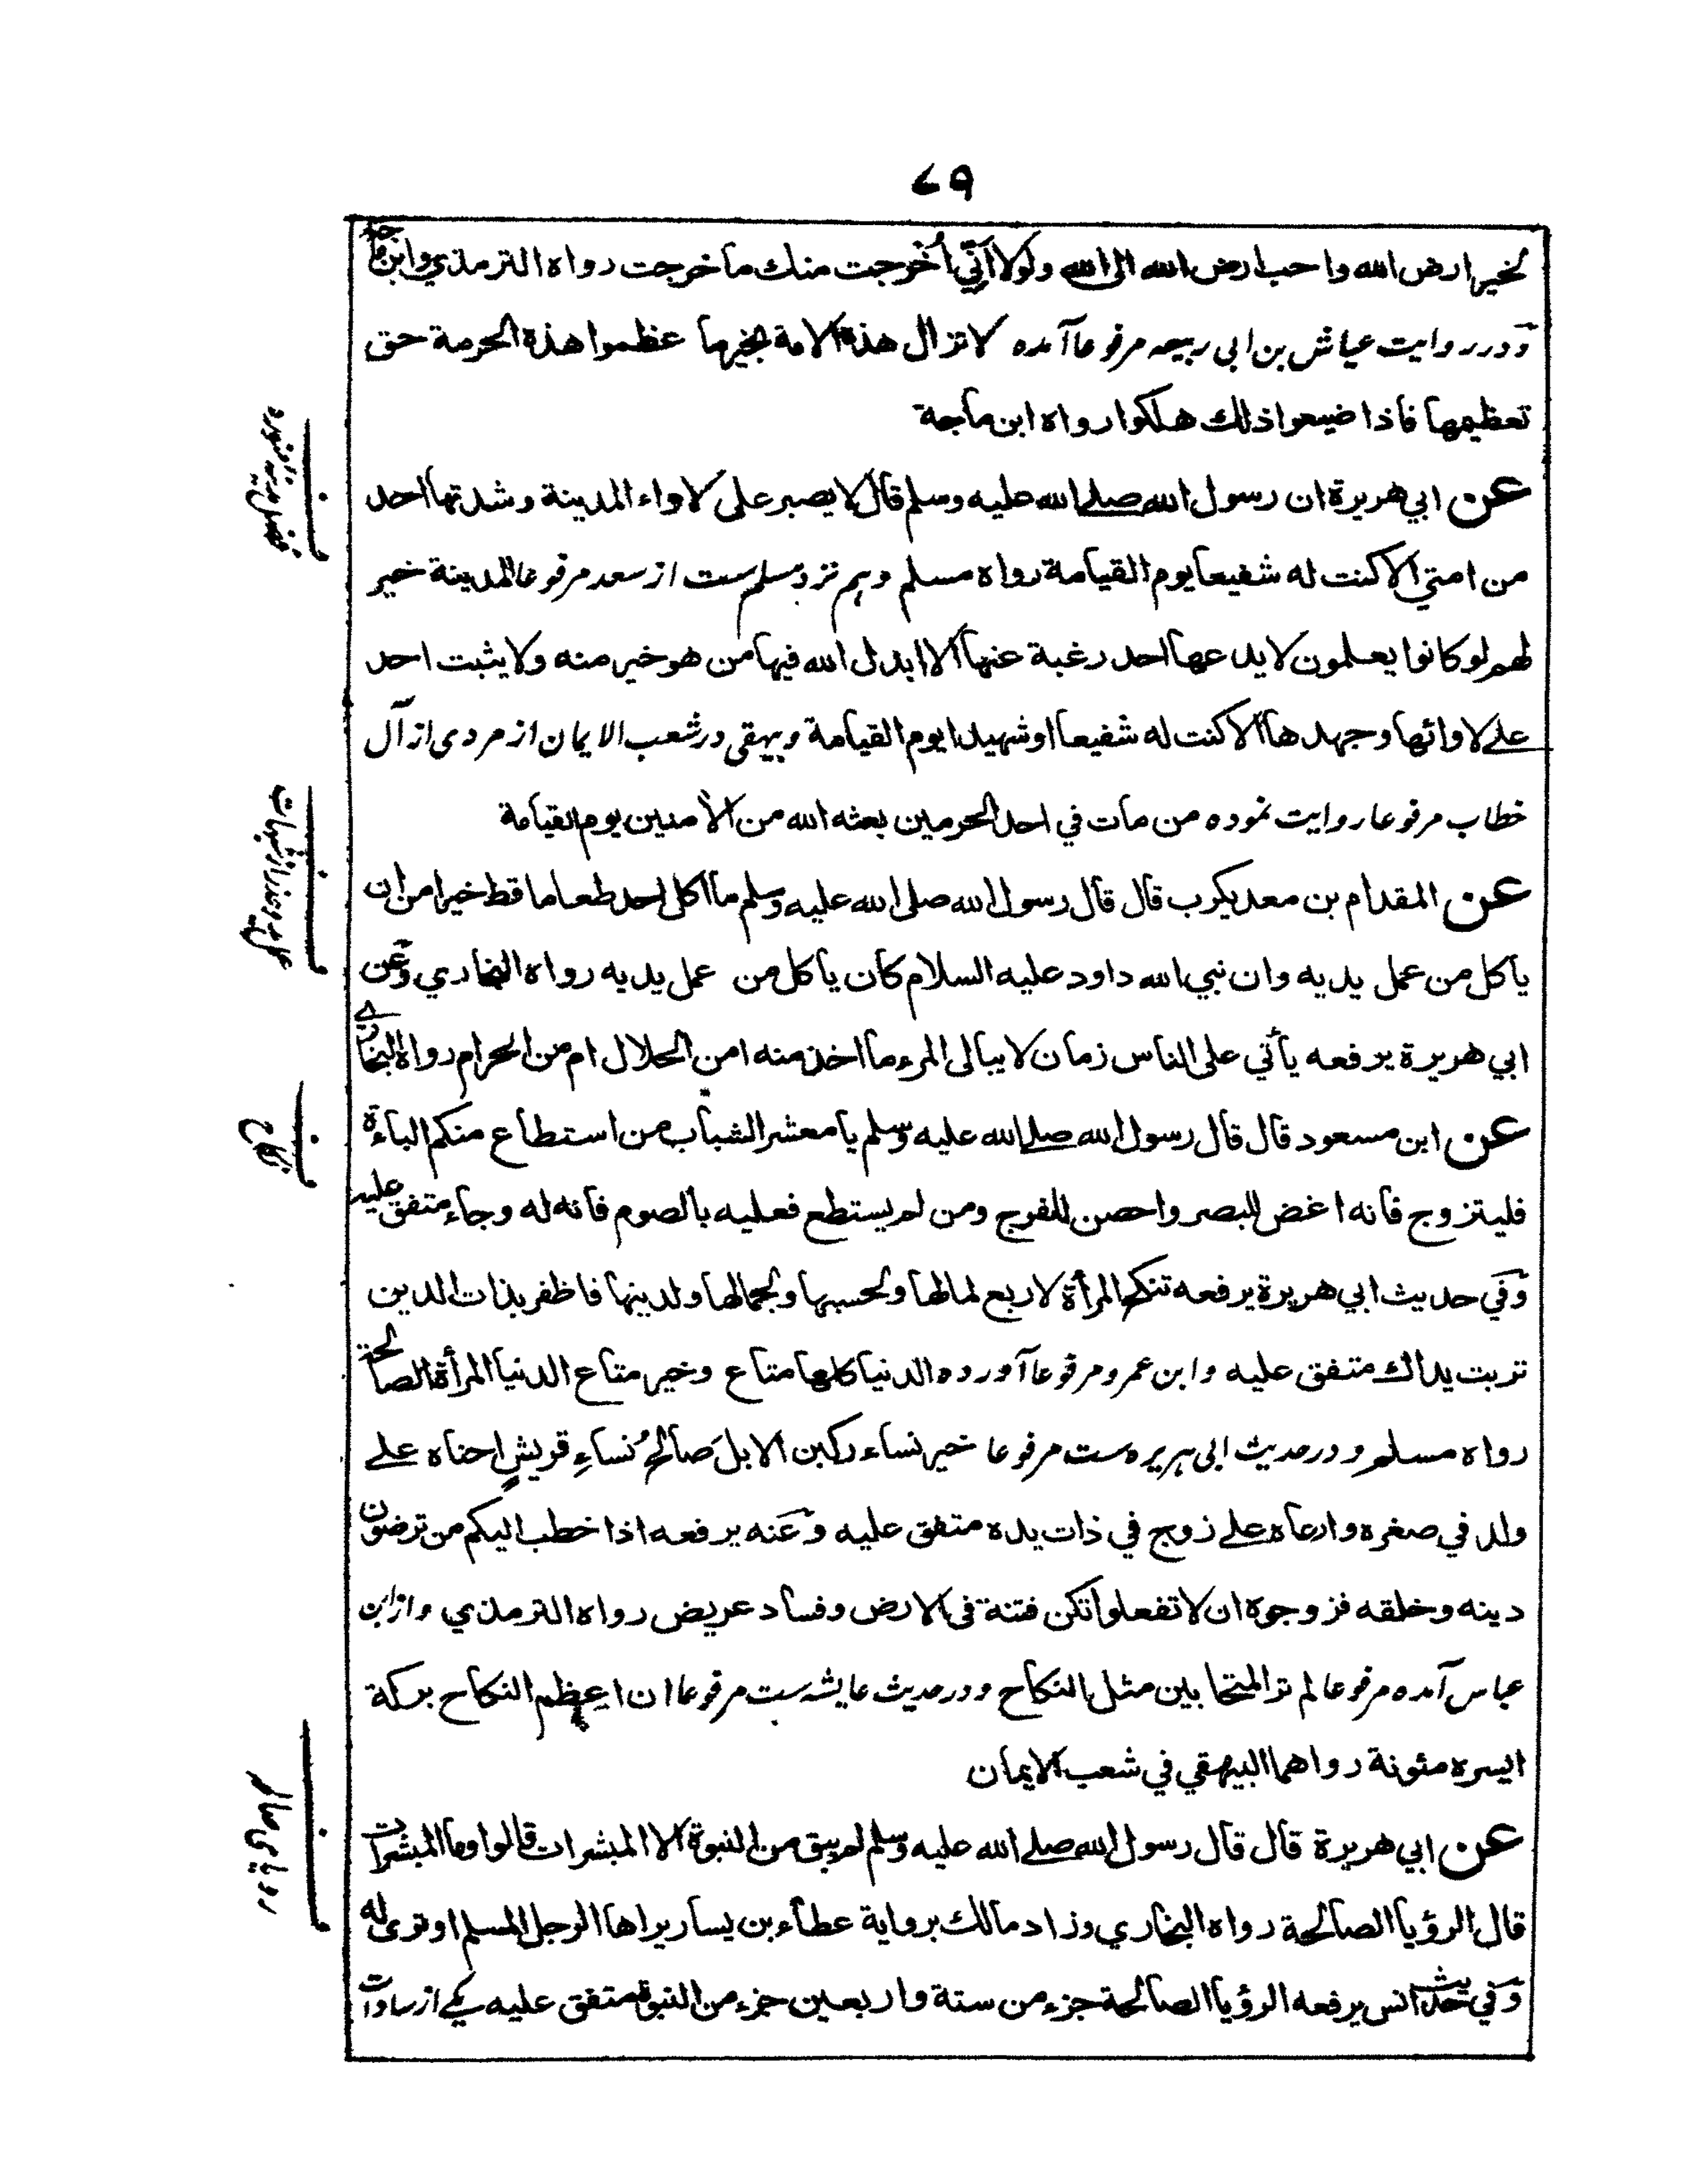 ۷۹
لخير ارض الله واحب ارض الله الى الله ولولا اَنِّي اُخْرجت منك ما خرجت رواه الترمذي وابن ماجه
ودر روایت عیاش بن ابی ربیعه مرفوعا آمده لا تزال هذه الامة بخيرما عظموا هذه الحرمة حق
تعظيمها فاذا ضيعوا ذلك هلكوا رواه ابن ماجة
عن ابي هريرة ان رسول الله صلے الله عليه وسلم قال لا يصبر على لاواء المدينة وشدتها احد
من امتي الا كنت له شفيعا يوم القيامة رواه مسلم وہم نزد مسلم ست از سعد مرفوعا المدينة خير
لهم لو كانوا يعلمون لا يدعها احد رغبة عنها الا ابدل الله فيها من هو خير منه ولا يثبت احد
علے لاوائها وجهدها الا كنت له شفيعا او شهيدا يوم القيامة وبیہقی در شعب الایمان از مردی از آل
خطاب مرفوعا روایت نموده من مات في احد الحرمين بعثه الله من الاٰمنين يوم القيامة
عن المقدام بن معديكرب قال قال رسول الله صلى الله عليه وسلم ما اكل احد طعاما قط خيرا من ان
ياكل من عمل يديه وان نبي الله داود عليه السلام كان ياكل من عمل يديه رواه البخاري وعن
ابي هريرة يرفعه يأتي على الناس زمان لا يبالى المرء ما اخذ منه امن الحلال ام من الحرام رواه البخارے
عن ابن مسعود قال قال رسول الله صلے الله عليه وسلم يا معشر الشباب من استطاع منكم الباءة
فليتزوج فانه اغض للبصر واحصن للفرج ومن لم يستطع فعليه بالصوم فانه له وجاء متفق عليه
وفي حديث ابي هريرة يرفعه تنكح المرأة لاربع لمالها ولحسبها ولجمالها ولدينها فاظفر بذات الدين
تربت يداك متفق عليه وابن عمرو مرفوعا آورده الدنيا كلها متاع وخير متاع الدنيا المرأة الصالحة
رواه مسلم ودر حدیث ابی ہریره ست مرفوعا خير نساء ركبن الابلَ صالحُ نساءِ قريشٍ احناه علے
ولد في صغره وارعاه علے زوج في ذات يده متفق عليه وعنه يرفعه اذا خطب اليكم من ترضون
دينه وخلقه فزوجوه ان لا تفعلوا تكن فتنة فى الارض وفساد عريض رواه الترمذي واز ابن
عباس آمده مرفوعا لم تر للمتحابين مثل النكاح ودر حدیث عایشه ست مرفوعا ان اعظم النكاح بركة
ايسره مئونة رواهما البيهقي في شعب الايمان
عن ابي هريرة قال قال رسول الله صلے الله عليه وسلم لم يبق من النبوة الا المبشرات قالوا وما المبشرات
قال الرؤيا الصالحة رواه البخاري وزاد مالك برواية عطاء بن يسار يراها الرجل المسلم او ترى له
وفي حديث انس يرفعه الرؤيا الصالحة جزء من ستة واربعين جزء من النبوة متفق عليه یکے از سادات
فضل مدینه منوره
نكاح
رویای صالحه